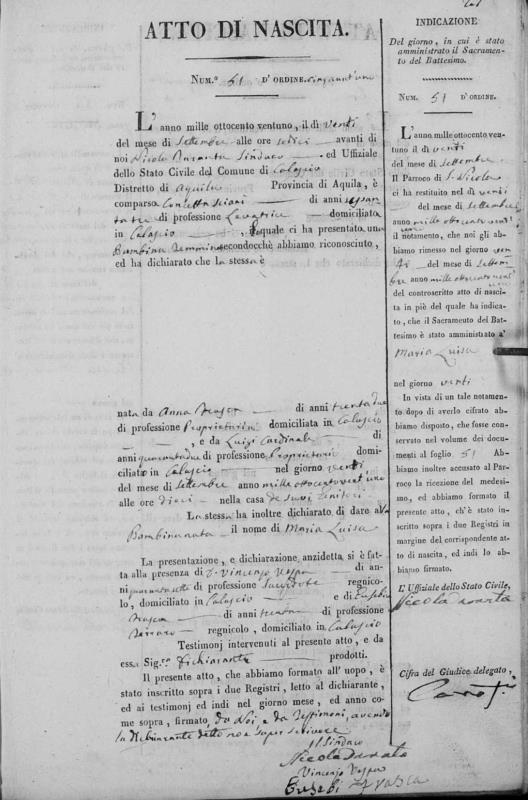 ATTO DI NASCITA.
NUM.º 51 D'ORDINE. cinquantuno
L'anno mille ottocento ventuno, il dì venti
del mese di Settembre alle ore sedici avanti di
noi Nicola Sindaco ed Uffiziale
dello Stato Civile del Comune di Calascio
Distretto di Aquila Provincia di Aquila, è
comparsa Concetta di anni sessan
ta tre di professione Levatrice domiciliata
in Calascio, la quale ci ha presentato una
Bambina Femmina secondocchè abbiamo riconosciuto,
ed ha dichiarato che la stessa è
nata da Anna di anni trentadue
di professione Proprietaria domiciliata in Calascio
, e da Luigi Cardinale di
anni quarantadue di professione Proprietario domi-
ciliato in Calascio nel giorno venti
del mese di Settembre anno mille ottocento vent'uno
alle ore dieci nella casa de suoi Genitori
La stessa ha inoltre dichiarato di dare alla
Bambina nata il nome di Maria Luisa
La presentazione, e dichiarazione anzidetta si è fat-
ta alla presenza di D. Vincenzo Vespa di an-
ni di professione Sacerdote regnico-
lo, domiciliato in Calascio e di Eusebio
di anni trenta di professione
Ferraro regnicolo, domiciliato in Calascio
Testimonj intervenuti al presente atto, e da
essa Sig.ra Dichiarante prodotti.
Il presente atto, che abbiamo formato all'uopo, è
stato inscritto sopra i due Registri, letto al dichiarante,
ed ai testimonj ed indi nel giorno mese, ed anno co-
me sopra, firmato da Noi e da Testimoni, avendo
la Dichiarante detto non saper scrivere
Il Sindaco
Nicola
Vincenzo Vespa
INDICAZIONE
Del giorno, in cui è stato
amministrato il Sacramen-
to del Battesimo.
NUM. 51 D'ORDINE.
L'anno mille ottocento ven-
tuno il dì venti
del mese di Settembre
Il Parroco di S. Nicola
ci ha restituito nel dì venti
del mese di Settembre
anno mille ottocento
il notamento, che noi gli ab-
biamo rimesso nel giorno ven
ti del mese di Settem
bre anno mille ottocento
del controscritto atto di nasci-
ta in piè del quale ha indica-
to, che il Sacramento del Bat-
tesimo è stato amministrato a
Maria Luisa
nel giorno venti
In vista di un tale notamen-
to dopo di averlo cifrato ab-
biamo disposto, che fosse con-
servato nel volume dei docu-
menti al foglio 51 Ab-
biamo inoltre accusato al Par-
roco la ricezione del medesi-
mo, ed abbiamo formato il
presente atto, ch'è stato in-
scritto sopra i due Registri in
margine del corrispondente at-
to di nascita, ed indi lo ab-
biamo firmato.
L'Uffiziale dello Stato Civile,
Nicola
Cifra del Giudice delegato,